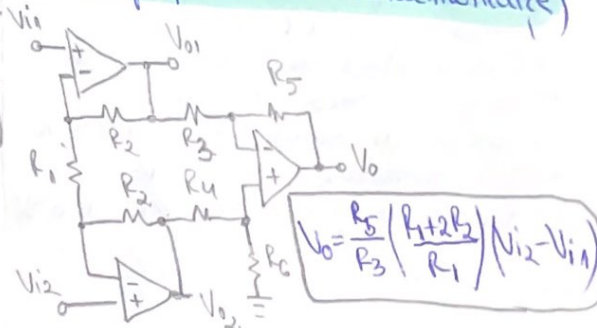 Vi1
Vo1
R5
R2
R3
R1
Vo
R2
R4
R6
Vi2
Vo2
Vo = R5/R3 (R1+2R2/R1) (Vi2-Vi1)